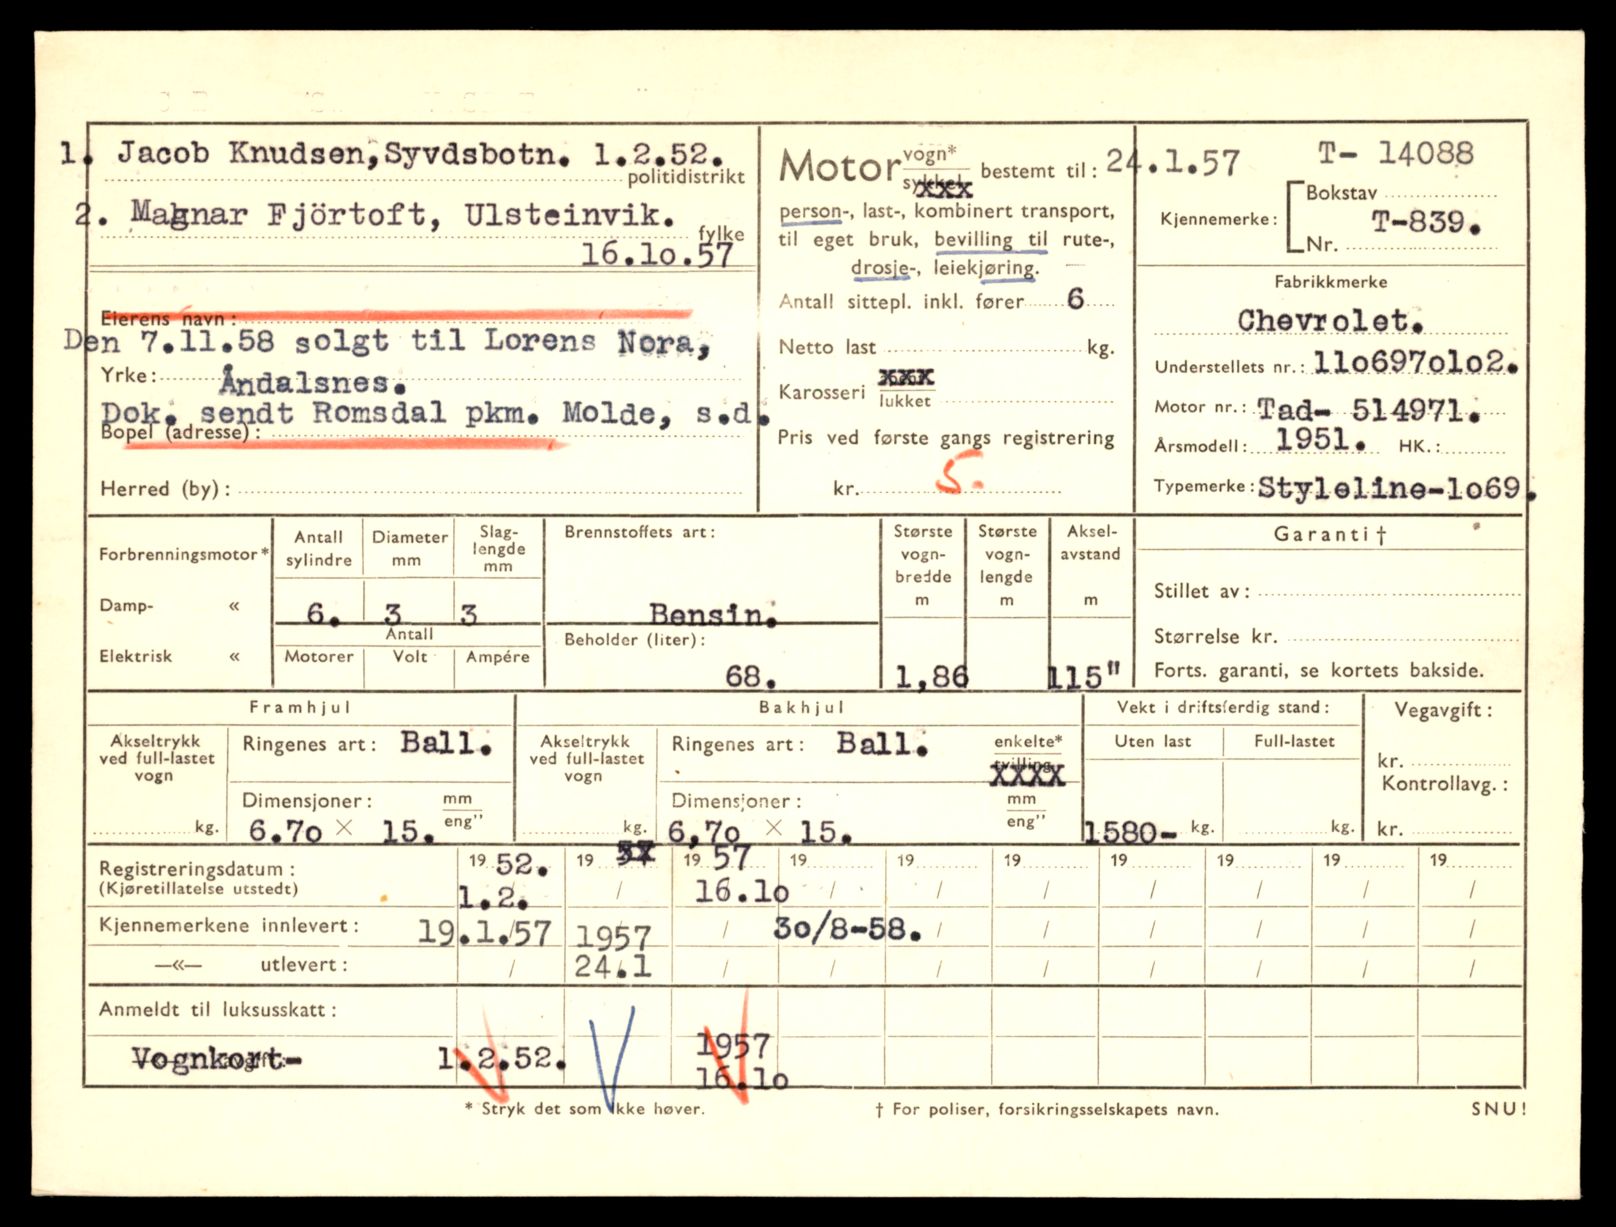 1. Jacob Knudsen, Syvdsbotn. 1.2.52.
politidistrikt
2. Magnar Fjörtoft, Ulsteinvik.
fylke
16.1o.57
Eierens navn:
Den 7.11.58 solgt til Lorens Nora,
Yrke: Åndalsnes.
Dok. sendt Romsdal pkm. Molde, s.d.
Bopel (adresse):
Herred (by):
Motor vogn* bestemt til: 24.1.57
sykkel
person-, last-, kombinert transport,
til eget bruk, bevilling til rute-,
drosje-, leiekjøring.
Antall sittepl. inkl. fører 6
Netto last kg.
Karosseri xxx
lukket
Pris ved første gangs registrering
kr. 5.
T- 14088
Kjennemerke: Bokstav
T-839.
Nr.
Fabrikkmerke
Chevrolet.
Understellets nr.: 11o697o1o2.
Motor nr.: Tad- 514971.
Årsmodell: 1951. HK.:
Typemerke: Styleline-1o69.
Forbrenningsmotor*
Damp- «
Elektrisk «
Antall sylindre
Diameter mm
Slag-lengde mm
6. 3 3
Antall
Motorer Volt Ampére
Brennstoffets art:
Bensin.
Beholder (liter):
68.
Største vogn-bredde m
Største vogn-lengde m
Aksel-avstand m
1,86 115"
Garanti †
Stillet av:
Størrelse kr.
Forts. garanti, se kortets bakside.
Framhjul
Akseltrykk ved full-lastet vogn
kg.
Ringenes art: Ball.
Dimensjoner: mm
6.7o × 15. eng"
Bakhjul
Akseltrykk ved full-lastet vogn
kg.
Ringenes art: Ball. enkelte*
tvilling
XXXX
Dimensjoner: mm
6,7o × 15. eng"
Vekt i driftsferdig stand:
Uten last Full-lastet
1580- kg. kg.
Vegavgift:
kr.
Kontrollavg.:
kr.
Registreringsdatum: 19 52. 19 19 57 19 19 19 19 19 19 19
(Kjøretillatelse utstedt) 1.2. / 16.1o / / / / / / /
Kjennemerkene innlevert: 19.1.57 1957 / 3o/8-58. / / / / / /
—«— utlevert: / 24.1 / / / / / / / /
Anmeldt til luksusskatt:
Vognkort- 1.2.52. 1957
16.1o
* Stryk det som ikke høver.
† For poliser, forsikringsselskapets navn.
SNU!